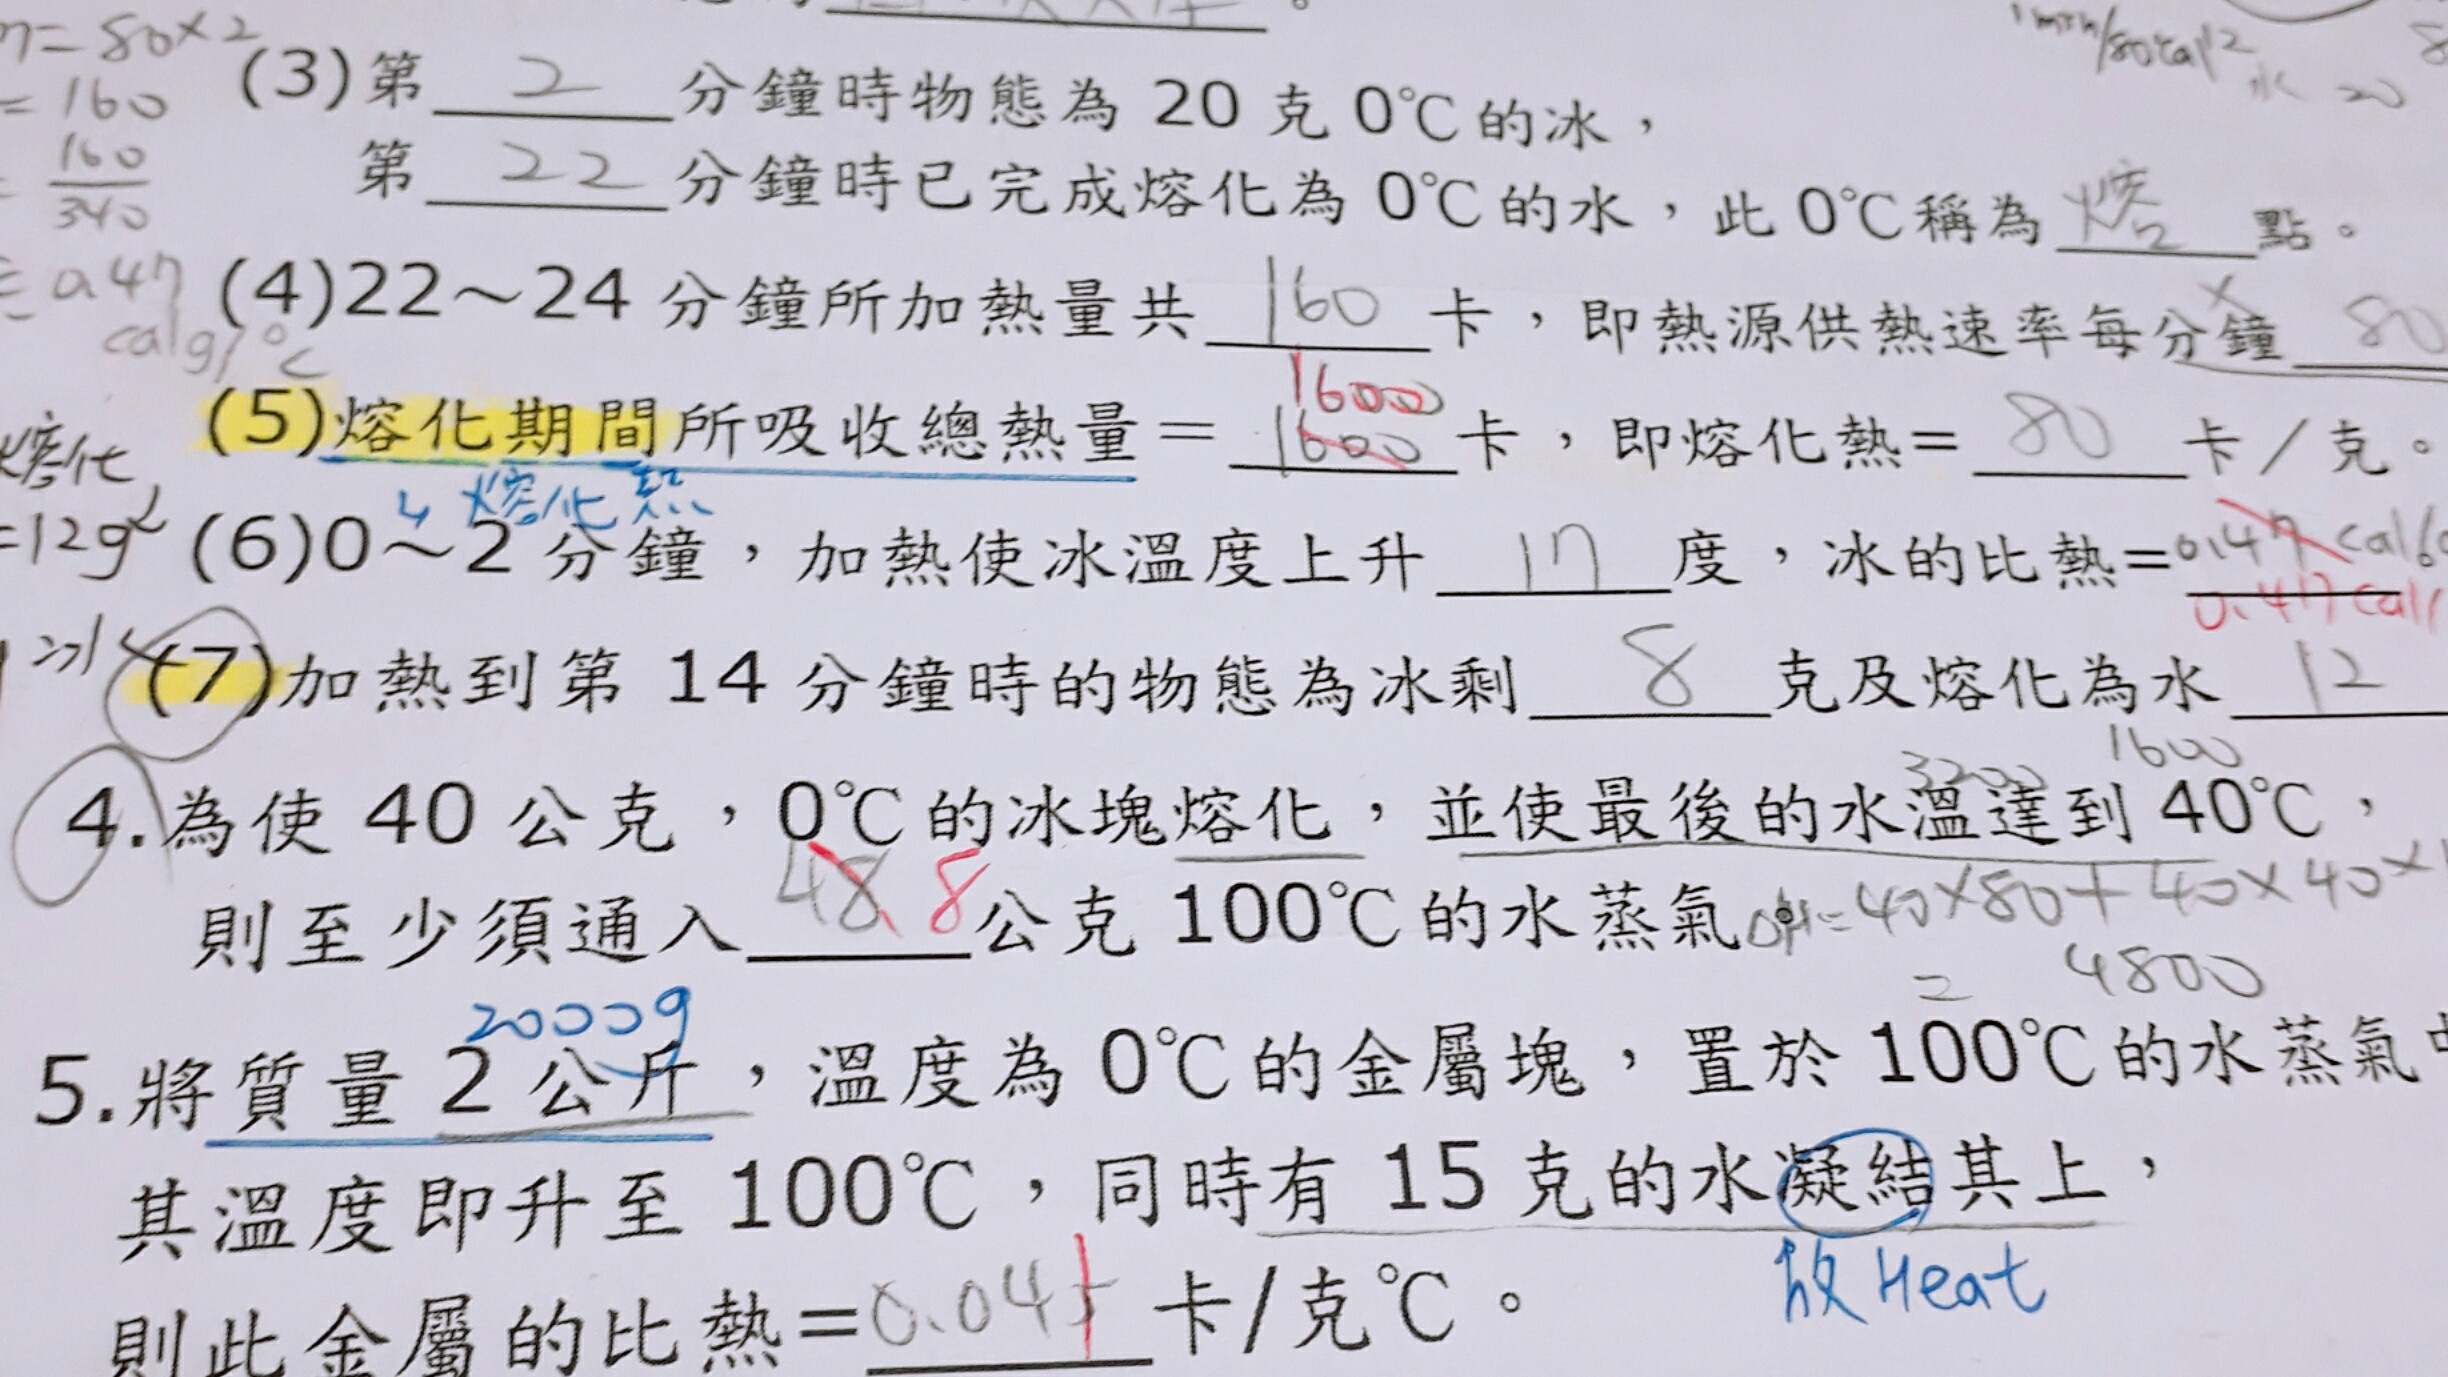 m=80×2
=160
160
340
=0.47
cal g/℃
1min/80cal
水 20
(3)第 2 分鐘時物態為 20 克 0℃的冰，
第 22 分鐘時已完成熔化為 0℃的水，此 0℃稱為 熔 點。
(4)22～24 分鐘所加熱量共 160 卡，即熱源供熱速率每分鐘 80
1600
(5)熔化期間所吸收總熱量＝ 1600 卡，即熔化熱= 80 卡／克。
↳ 熔化熱
熔化
=12g
(6)0～2 分鐘，加熱使冰溫度上升 17 度，冰的比熱=0.47 cal
0.47 cal
(7)加熱到第 14 分鐘時的物態為冰剩 8 克及熔化為水 12
3200 1600
4.為使 40 公克，0℃的冰塊熔化，並使最後的水溫達到 40℃，
則至少須通入 48 8 公克 100℃的水蒸氣。
ΔH=40×80+40×40×1
= 4800
2000g
5.將質量 2 公斤，溫度為 0℃的金屬塊，置於 100℃的水蒸氣中
其溫度即升至 100℃，同時有 15 克的水凝結其上，
放 Heat
則此金屬的比熱=0.04 卡/克℃。